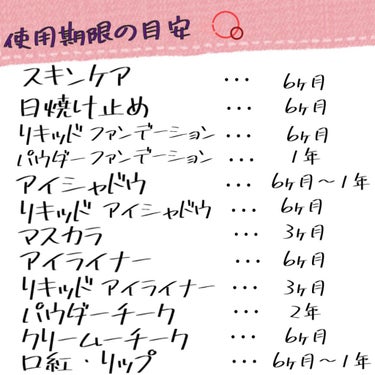 使用期限の目安
スキンケア … 6ヶ月
日焼け止め … 6ヶ月
リキッドファンデーション … 6ヶ月
パウダーファンデーション … 1年
アイシャドウ … 6ヶ月〜1年
リキッドアイシャドウ … 6ヶ月
マスカラ … 3ヶ月
アイライナー … 6ヶ月
リキッドアイライナー … 3ヶ月
パウダーチーク … 2年
クリームーチーク … 6ヶ月
口紅・リップ … 6ヶ月〜1年